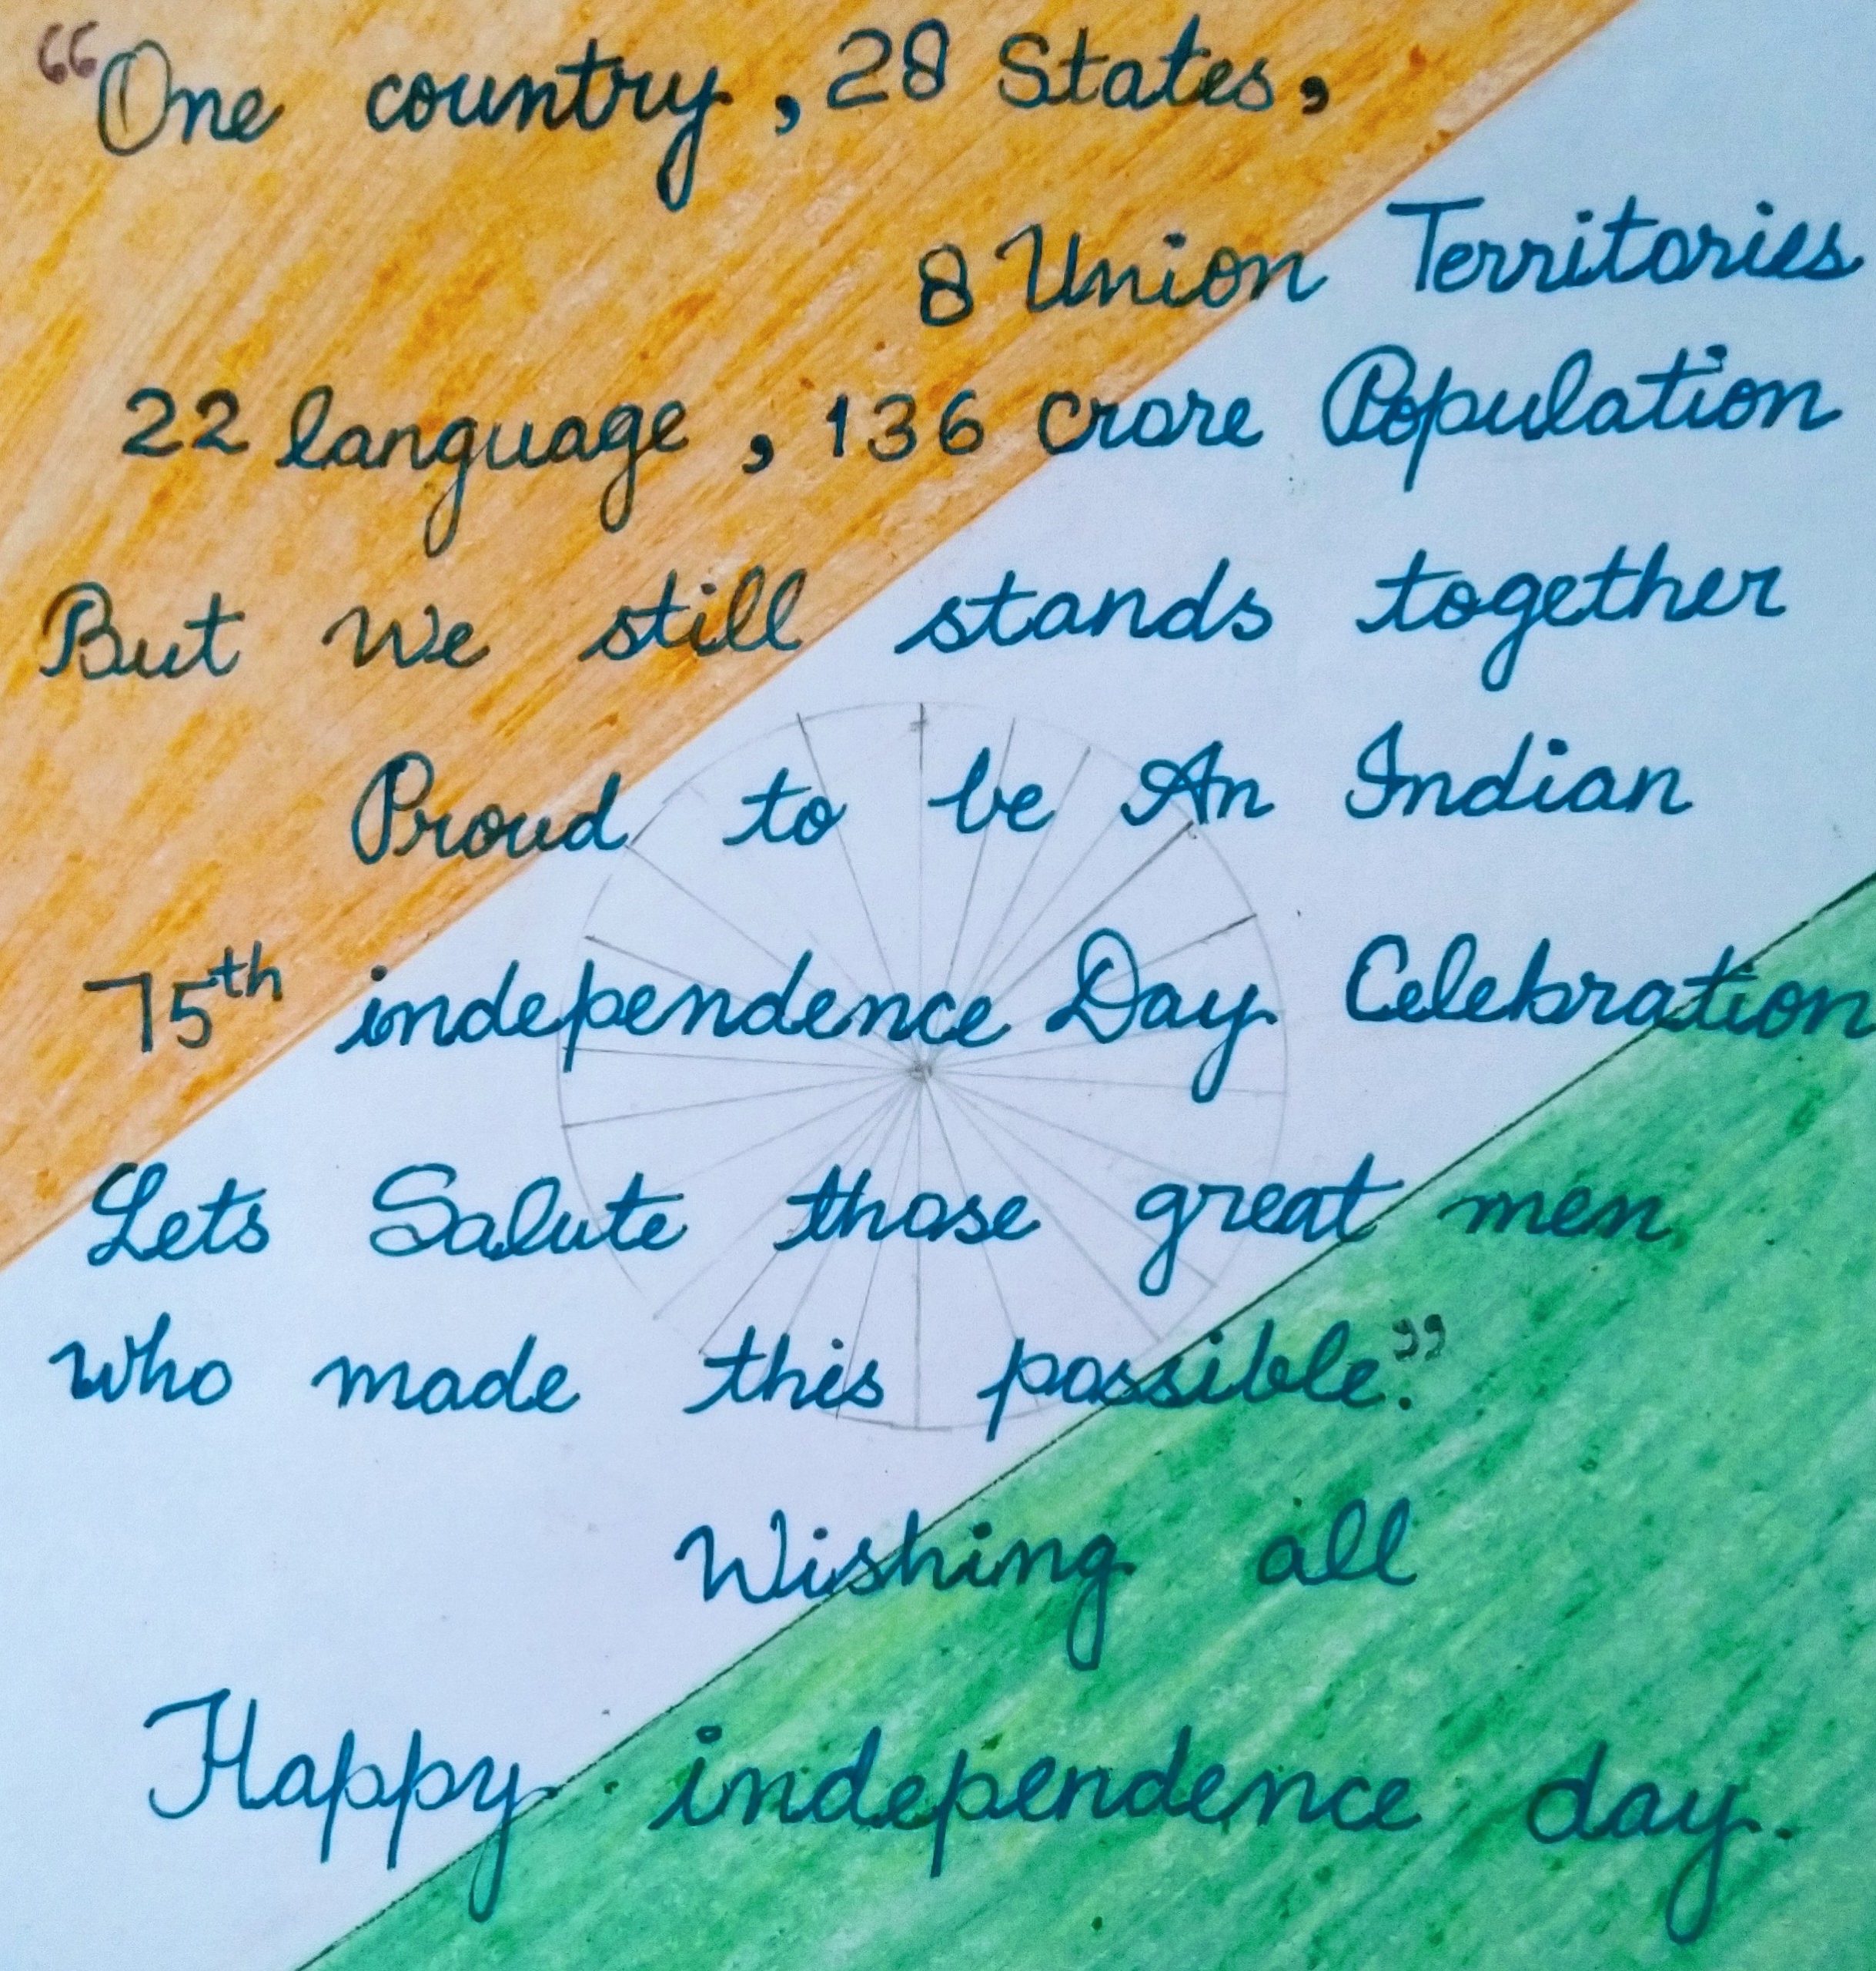 “One country, 28 States,
8 Union Territories
22 language, 136 crore Population
But we still stands together
Proud to be An Indian
75th independence Day Celebration
Lets Salute those great men
who made this possible.”
Wishing all
Happy independence day.